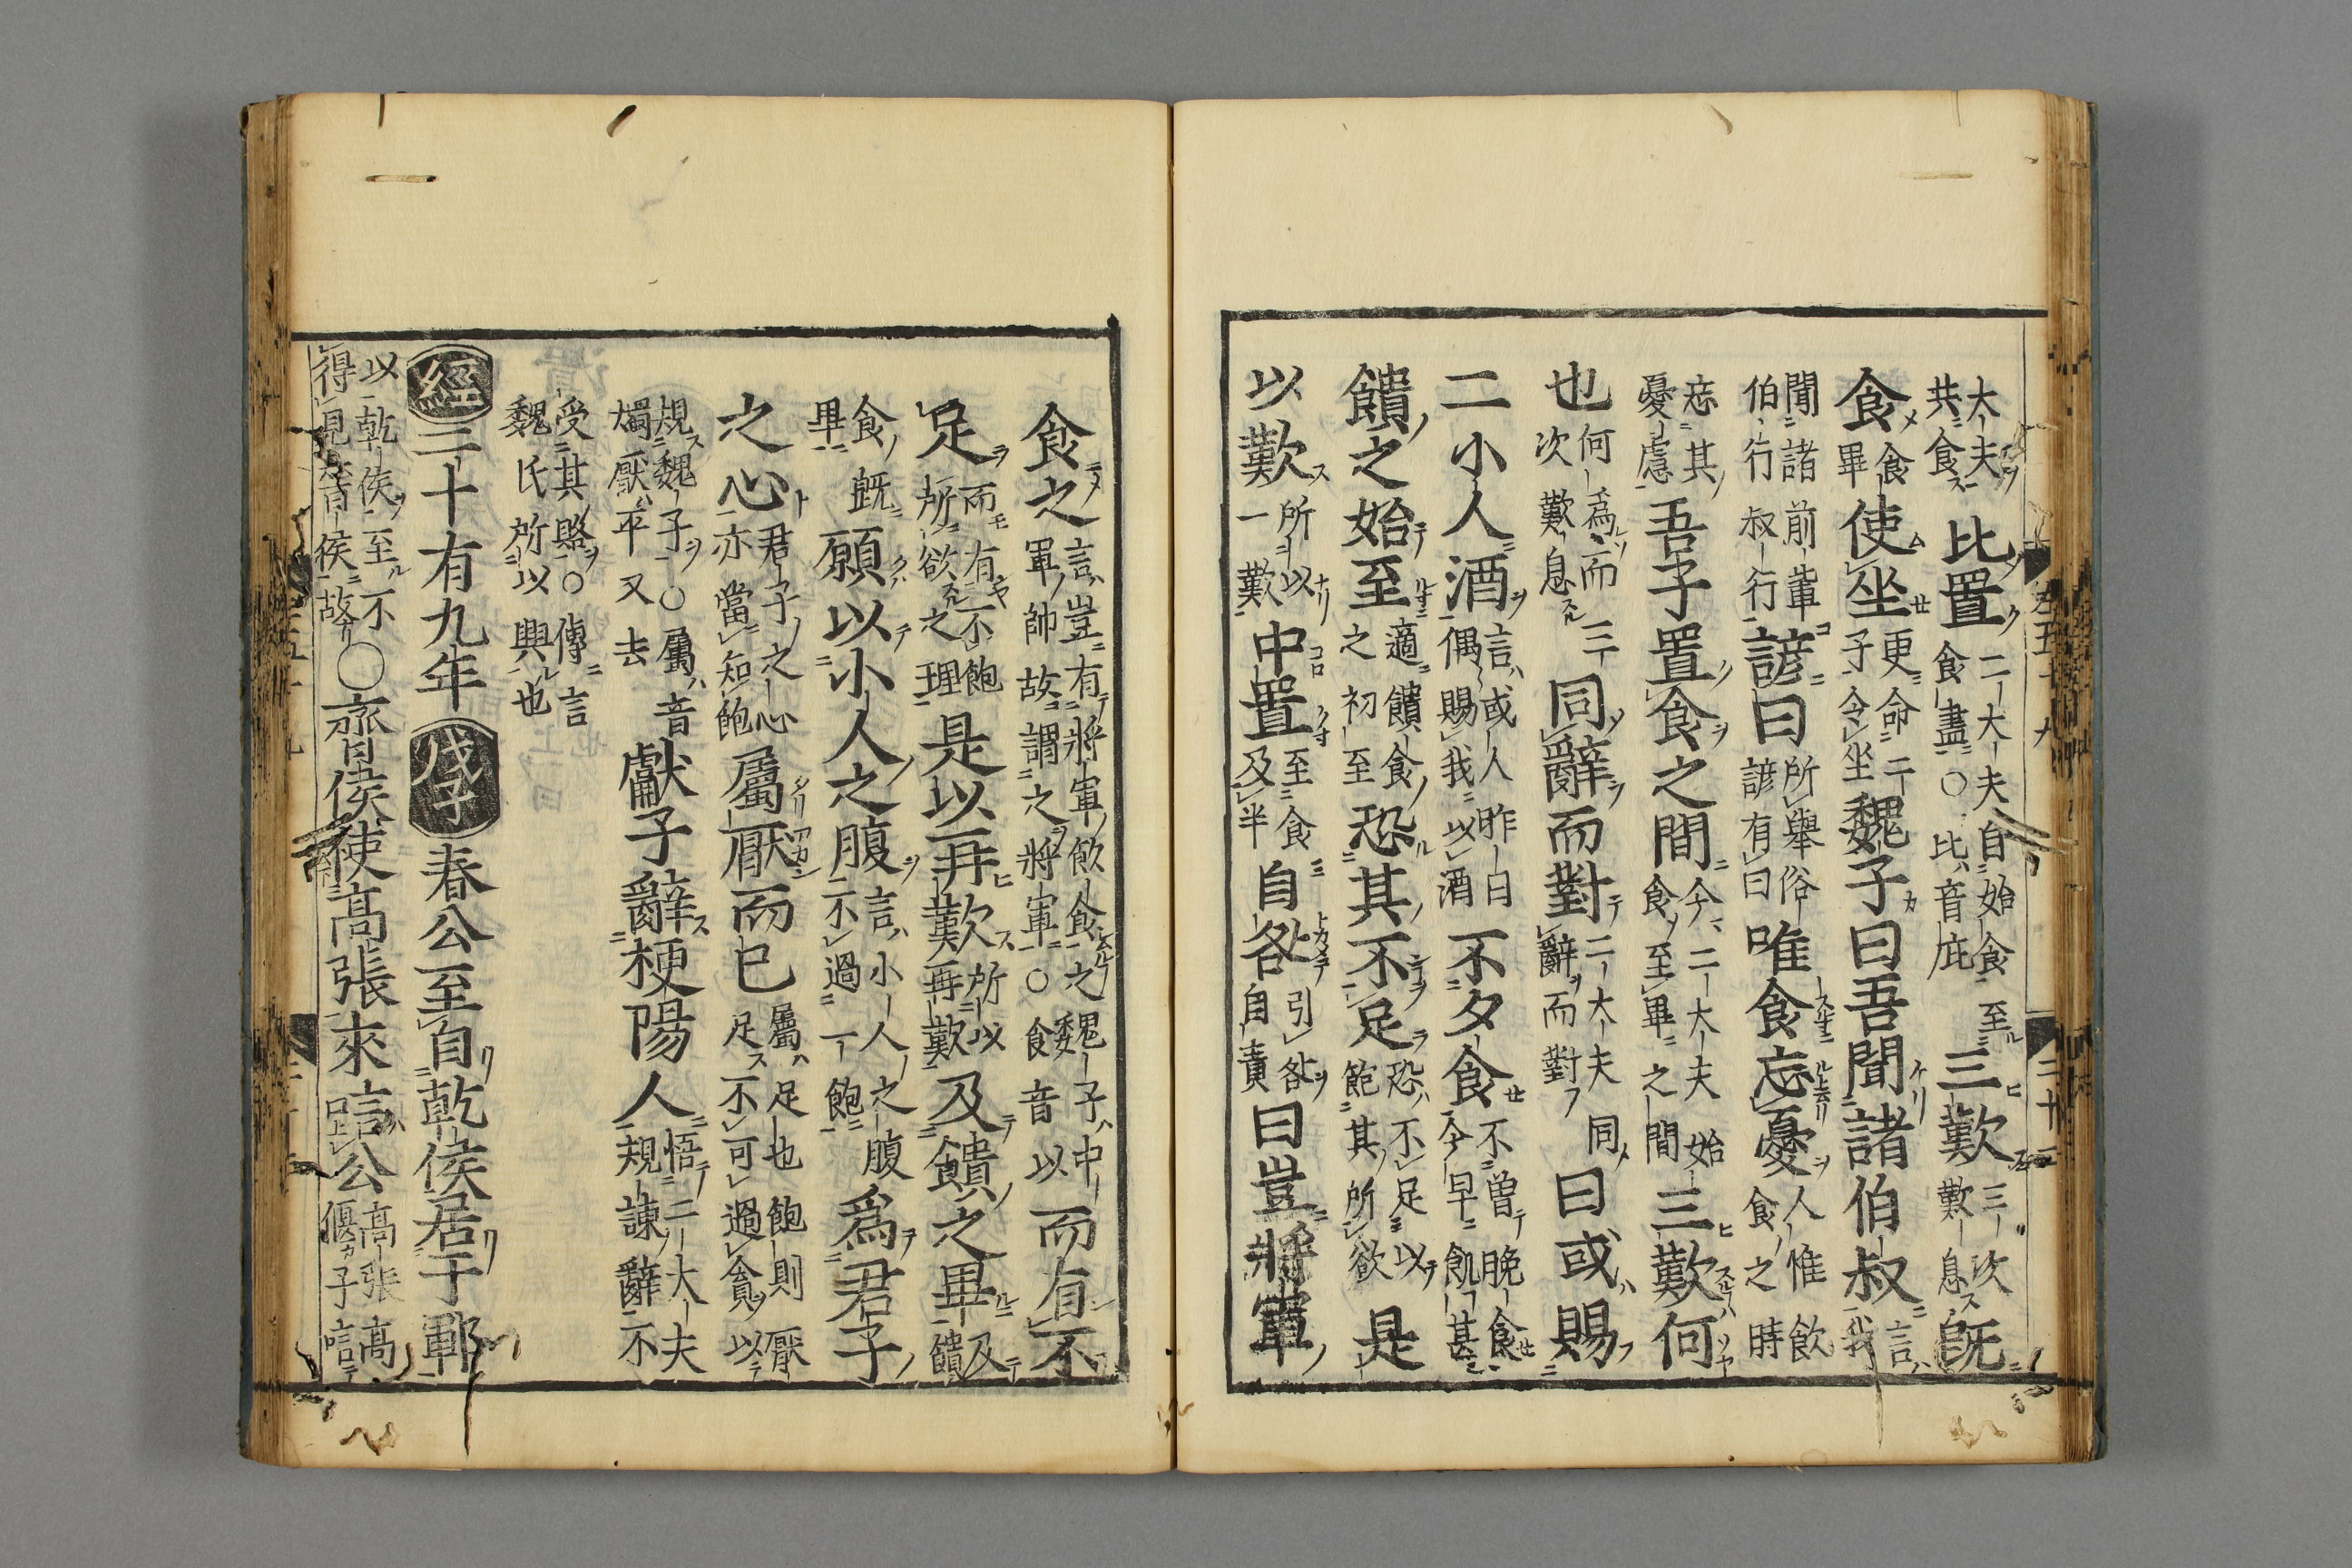 大夫共食比置二大夫自始食至食盡○比音庇三歎三次歎息既
食食畢使坐更命二子令坐魏子曰吾聞諸伯叔言我
聞諸前輩伯行叔行諺曰所舉俗諺有曰唯食忘憂人惟飲食之時
忘其憂慮吾子置食之間今二大夫始食至畢之間三歎何
也何爲而三次歎息同辭而對二大夫同辭而對曰或賜
二小人酒言或人昨日偶賜我以酒不夕食不曾晚食今早飢甚
饋之始至適饋食之初至恐其不足恐不足以飽其所欲是
以歎所以一歎中置至食及半自咎引咎自責曰豈將軍
食之言豈有將軍飲食之魏子中軍帥故謂之將軍○食音以而有不
足而有不飽所欲之理是以再歎所以再歎及饋之畢及饋
食既畢願以小人之腹言小人之腹不過一飽爲君子
之心君子之心亦當知飽屬厭而已屬足也飽則厭足不可過貪以
規魏子○屬音燭厭平又去獻子辭梗陽人悟二大夫規諫辭不
受其賂○傳言魏氏所以興也
經二十有九年戊子春公至自乾侯居于鄆
以乾侯至不得見晉侯故○齊侯使高張來唁公高張高偃子唁